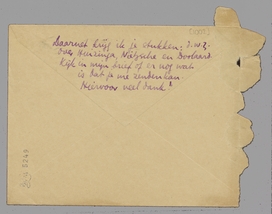 Daarnet krijg ik je stukken: d.w.z.
over Huizinga, Nietzsche en Doolaard
Kijk in mijn brief of er nog wat
is dat je me zenden kan
Hiervoor veel dank!